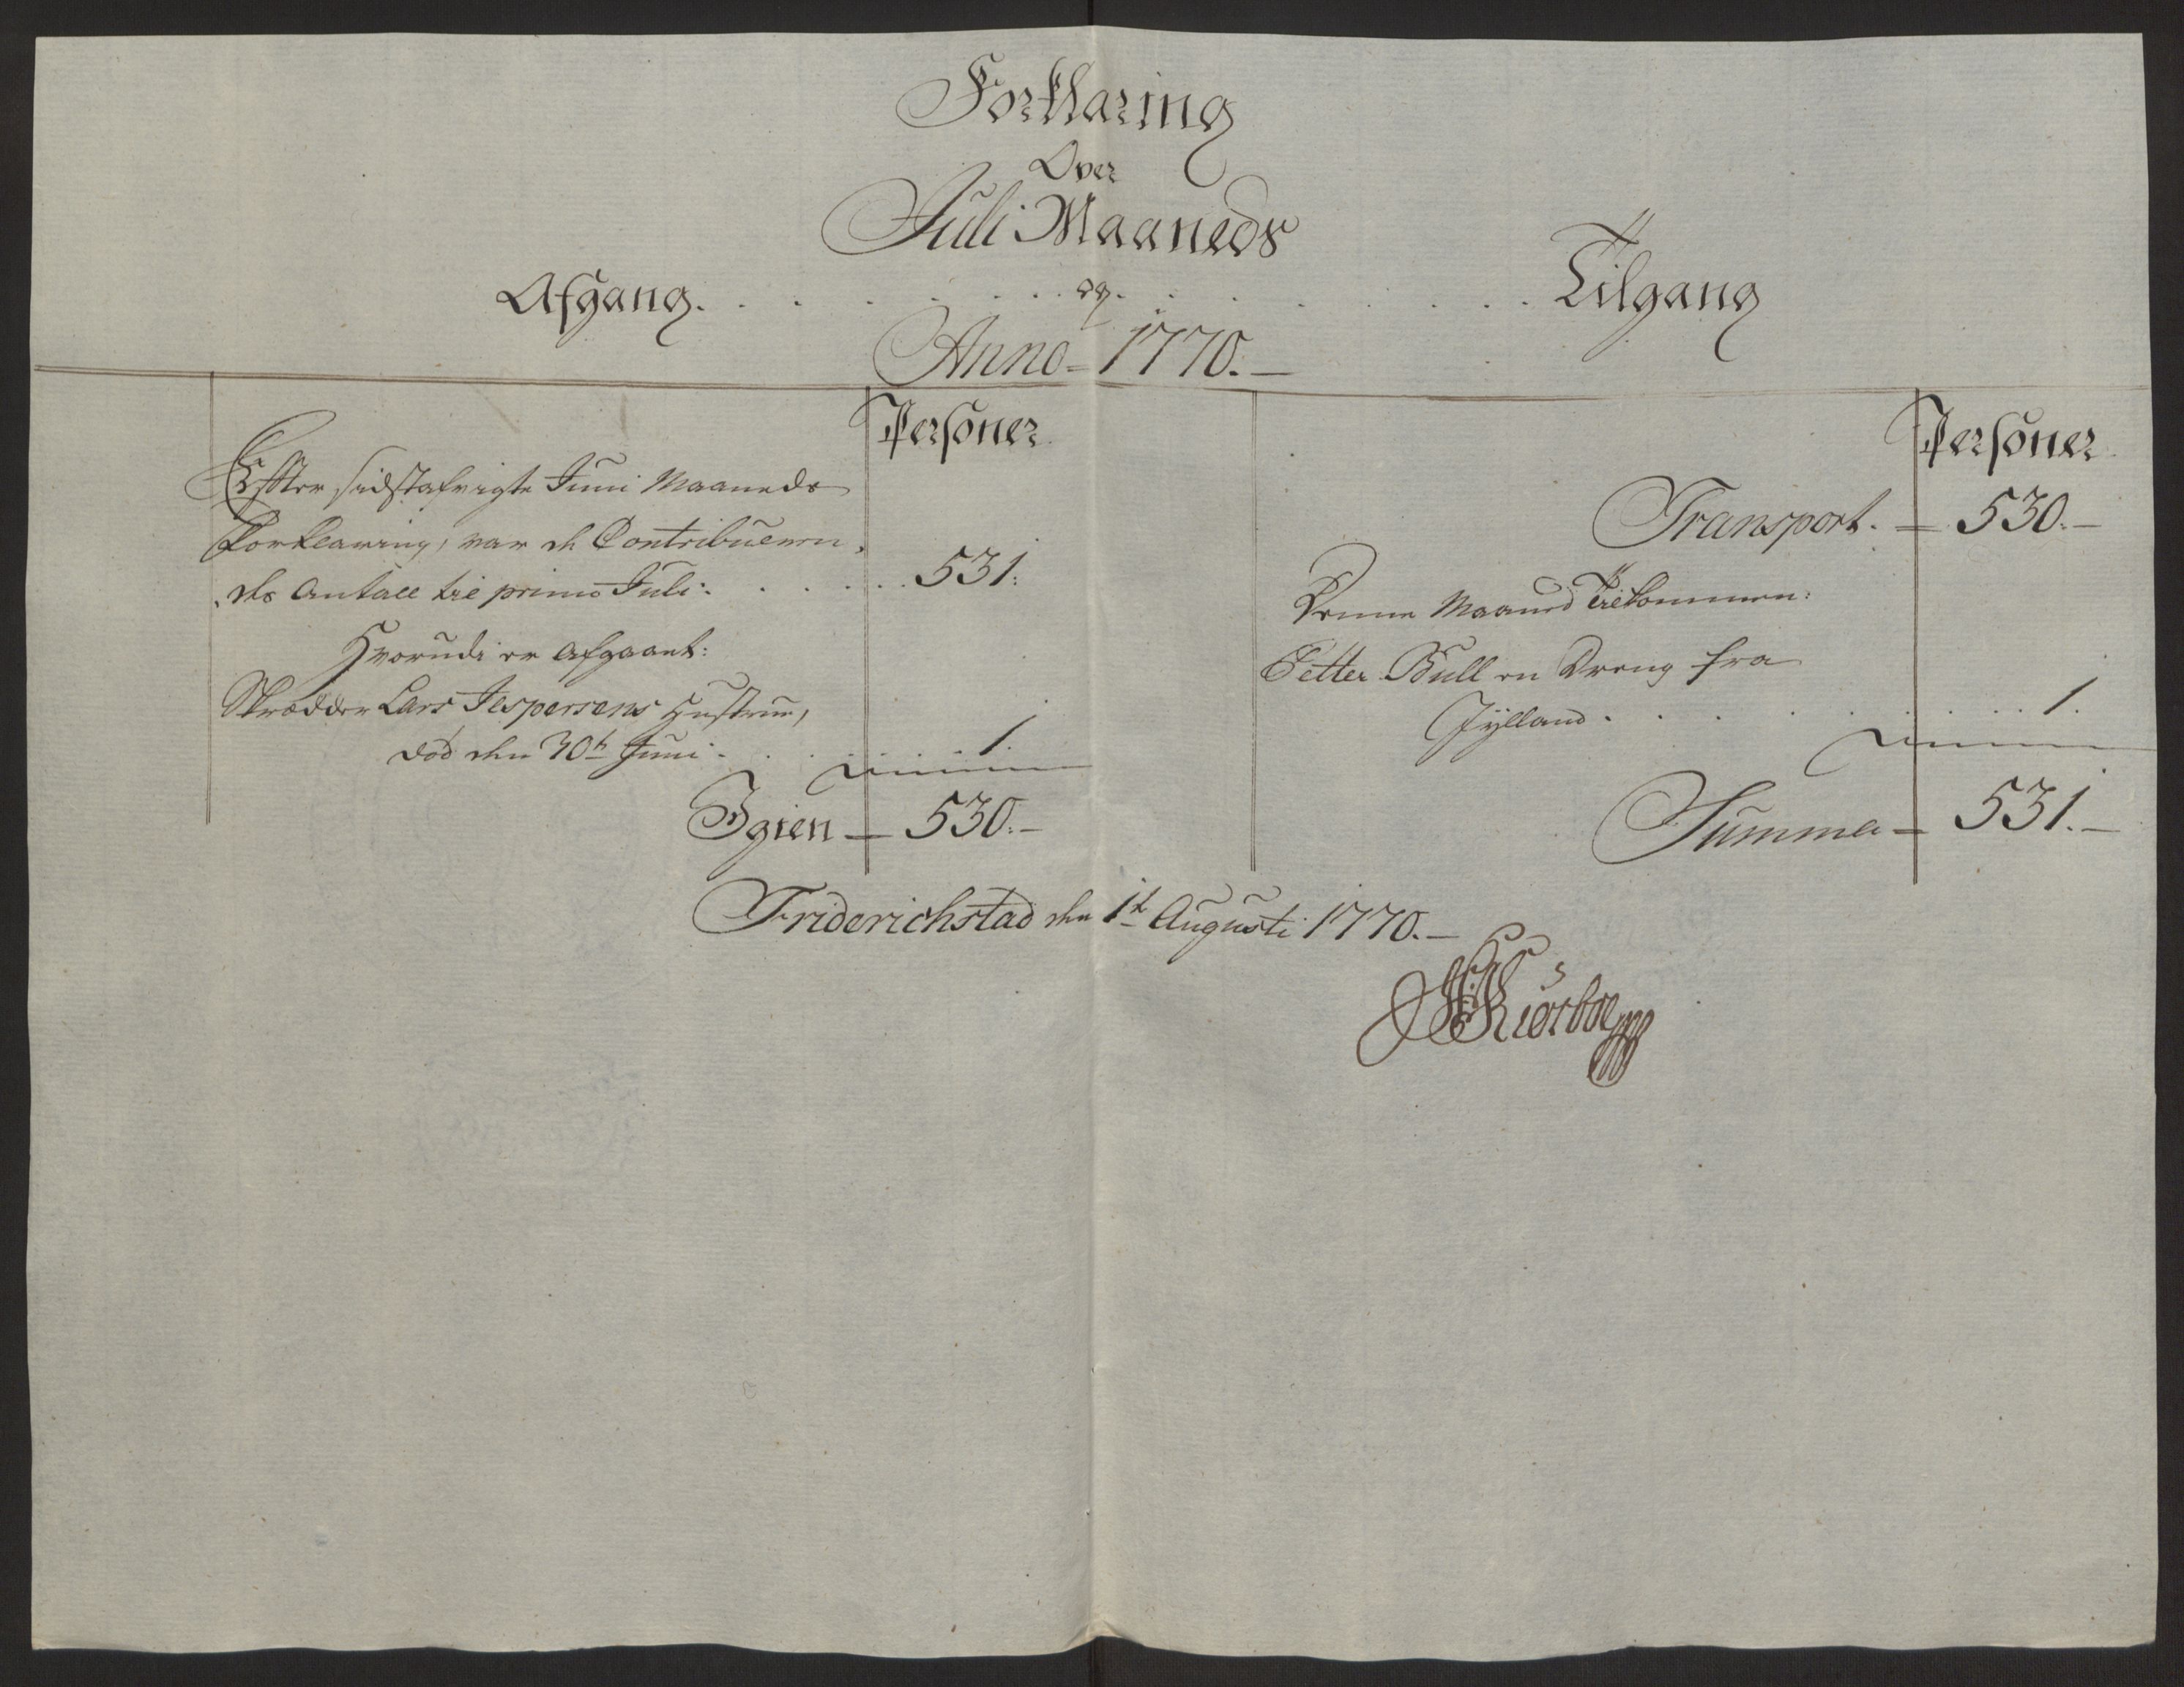 Forklaring
Over
Juli Maaneds
Afgang. . . . . . . og. . . . . . . . Tilgang
Anno 1770.
Personer
Effter sidstafvigte Juni Maaneds
Forklaring, var de Contribueren,
des Antall til primo Juli. . . . . . 531.
Hvorudi er afgaaet:
Skrædder Lars Jespersens Hustrue,
død den 30te Juni. . . . . . 1.
Igien 530.
Personer
Transport. 530.
Denne Maaned Tilkommen:
Petter Bull en Dreng fra
Jylland. . . . . . . 1.
Summa 531.
Friderichstad den 1te Augusti 1770.
Kiørboe